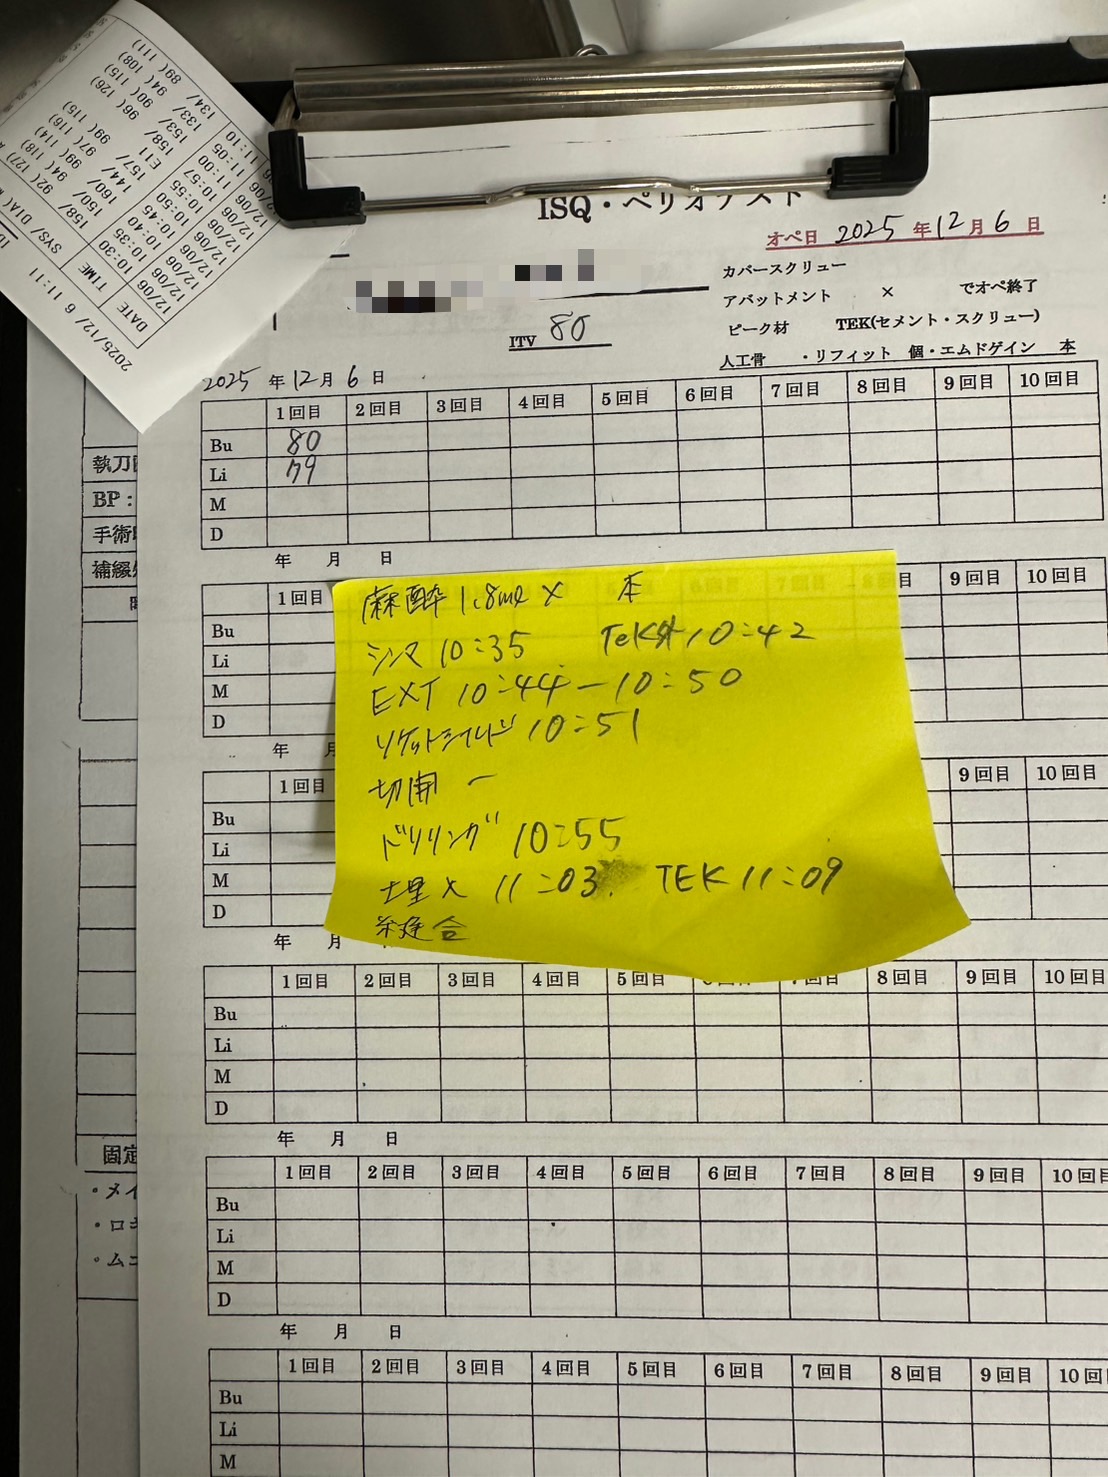 ISQ・ペリオテスト
オペ日 2025 年 12 月 6 日
カバースクリュー
アバットメント × でオペ終了
ピーク材 TEK(セメント・スクリュー)
人工骨 ・リフィット 個・エムドゲイン 本
ITV 80
2025 年 12 月 6 日
1回目 2回目 3回目 4回目 5回目 6回目 7回目 8回目 9回目 10回目
Bu 80
Li 79
M
D
年 月 日
1回目 9回目 10回目
Bu
Li
M
D
年 月
1回目 9回目 10回目
Bu
Li
M
D
年 月
麻酔 1.8ml × 本
シンマ 10:35 TeK外 10:42
EXT 10:44 - 10:50
ソケットシールド 10:51
切開 ー
ドリリング 10:55
埋入 11:03 TEK 11:09
縫合
1回目 2回目 3回目 4回目 5回目 8回目 9回目 10回目
Bu
Li
M
D
年 月 日
1回目 2回目 3回目 4回目 5回目 6回目 7回目 8回目 9回目 10回目
Bu
Li
M
D
年 月 日
1回目 2回目 3回目 4回目 5回目 6回目 7回目 8回目 9回目 10回
Bu
Li
M
執刀
BP:
手術
補綴
固定
・メイ
・ロキ
・ムコ
2025/12/ 6 11:11
DATE TIME SYS/ DIA(
12/06 10:30 158/ 92( 127)
12/06 10:35 150/ 94( 118)
12/06 10:40 160/ 99( 114)
12/06 10:45 144/ 97( 116)
12/06 10:50 157/ 99( 115)
12/06 10:55 E11
12/06 10:57 158/ 96( 126)
12/06 11:00 153/ 90( 115)
12/06 11:05 133/ 94( 108)
12/06 11:10 134/ 89( 111)